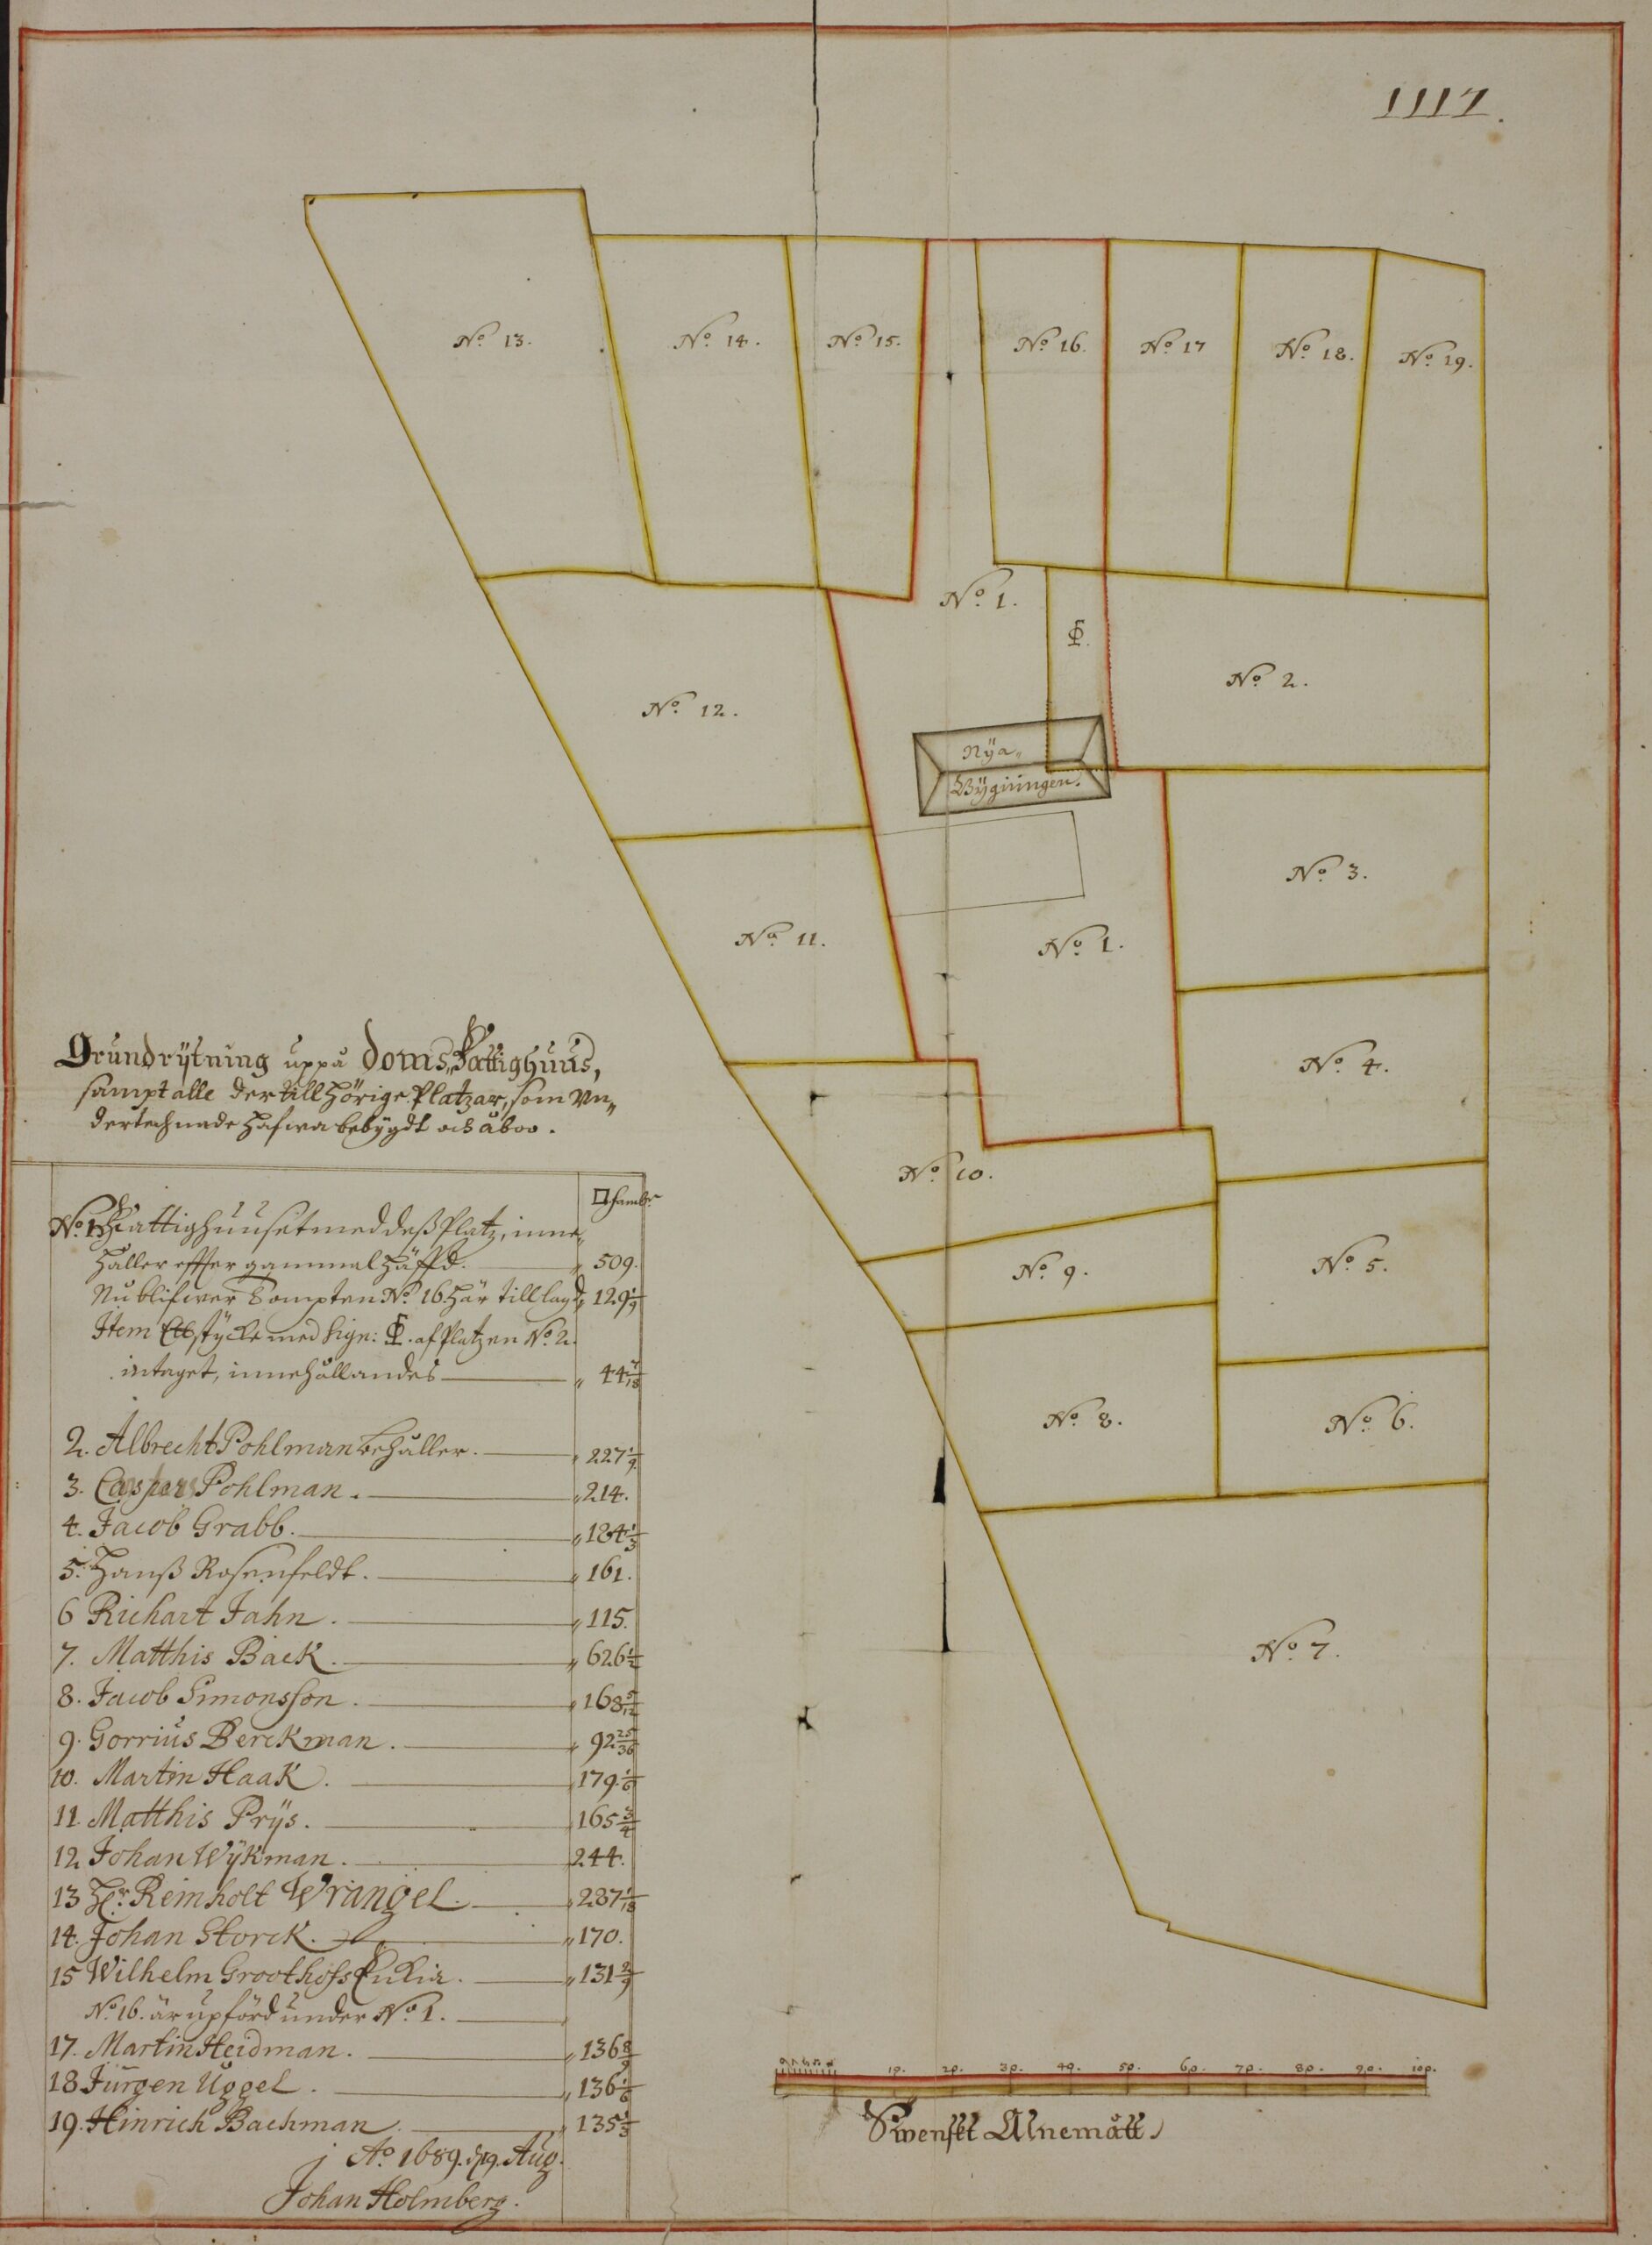 1117.
No 13.
No 14.
No 15.
No 16.
No 17
No 18.
No 19.
No 1.
No 2.
No 12.
Nÿa
Bÿgningen.
No 3.
No 11.
No 1.
No 4.
No 10.
No 9.
No 5.
No 8.
No 6.
No 7.
Grundrÿtning uppå Doms Fattighuus,
sampt alle der till hörige Platzar, som Un„
dertechnade hafwa bebÿgdt och åboo.
□ famb:r
No 1 Fattighuuset med deß Platz, inne„
håller effter gammal häffd. 509.
Nu blifwer Tompten No 16 här till lagd, 129 1/9
Item Ett stÿcke med Sign: af Platzen No 2.
intaget, innehållandes 44 7/18
2. Albrecht Pohlman behåller. 227 1/9
3. Casper Pohlman. 214.
4. Jacob Grabb. 184 1/3
5. Hanß Rosenfeldt. 161.
6 Richart Jahn. 115.
7. Matthis Bäck. 626 1/2
8. Jacob Simonsson. 168 5/12
9. Gorrius Berckman. 92 25/36
10. Martin Haak. 179 1/6
11 Matthis Prÿs. 165 3/4
12 Johan Wÿkman. 244.
13 H:r Reinholt Wrangel. 287 1/18
14. Johan Storck. 170.
15 Wilhelm Groothofs Enkia. 131 2/9
No 16. är upförd under No 1.
17. Martin Heidman. 136 8/9
18 Jürgen Uggel. 136 1/6
19. Hinrich Bachman 135 1/3
Ao 1689. d. 19. Aug.
Johan Holmberg.
10. 20. 30. 40. 50. 60. 70. 80. 90. 100.
Swenskt Alnemått